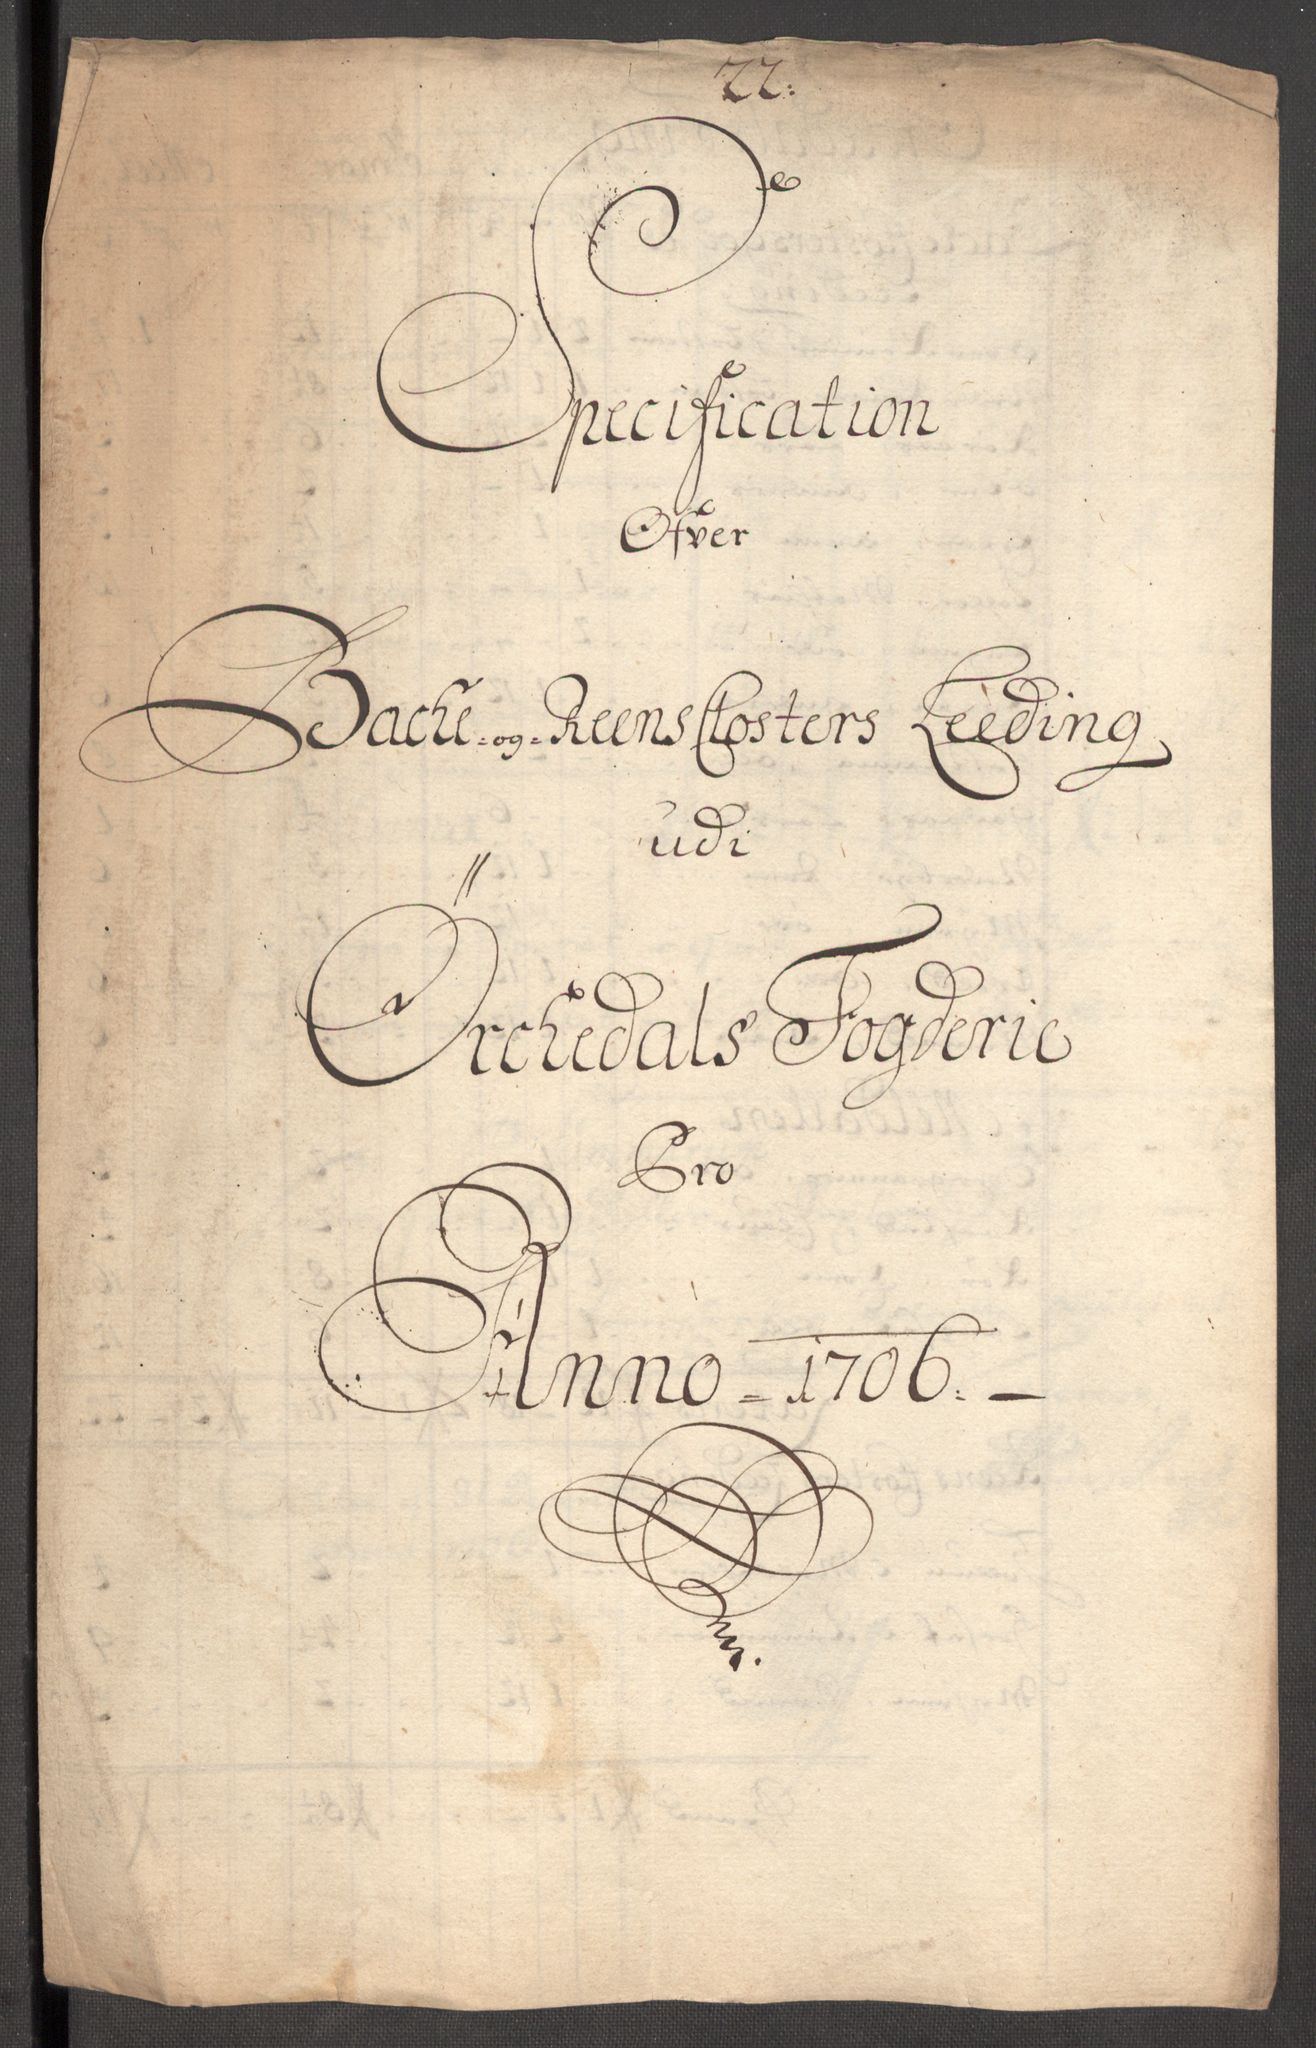 22:
Specification
Ofver
Bache-og-Reens Closters Leeding
udi
Örchedals Fogderie
Pro
Anno = 1706. —